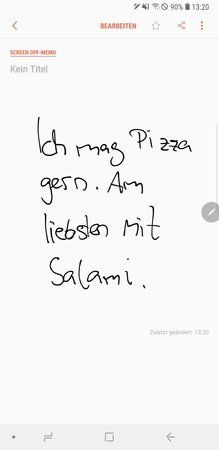 90% 13:20
BEARBEITEN
SCREEN OFF-MEMO
Kein Titel
Ich mag Pizza
gern. Am
liebsten mit
Salami.
Zuletzt geändert: 13:20